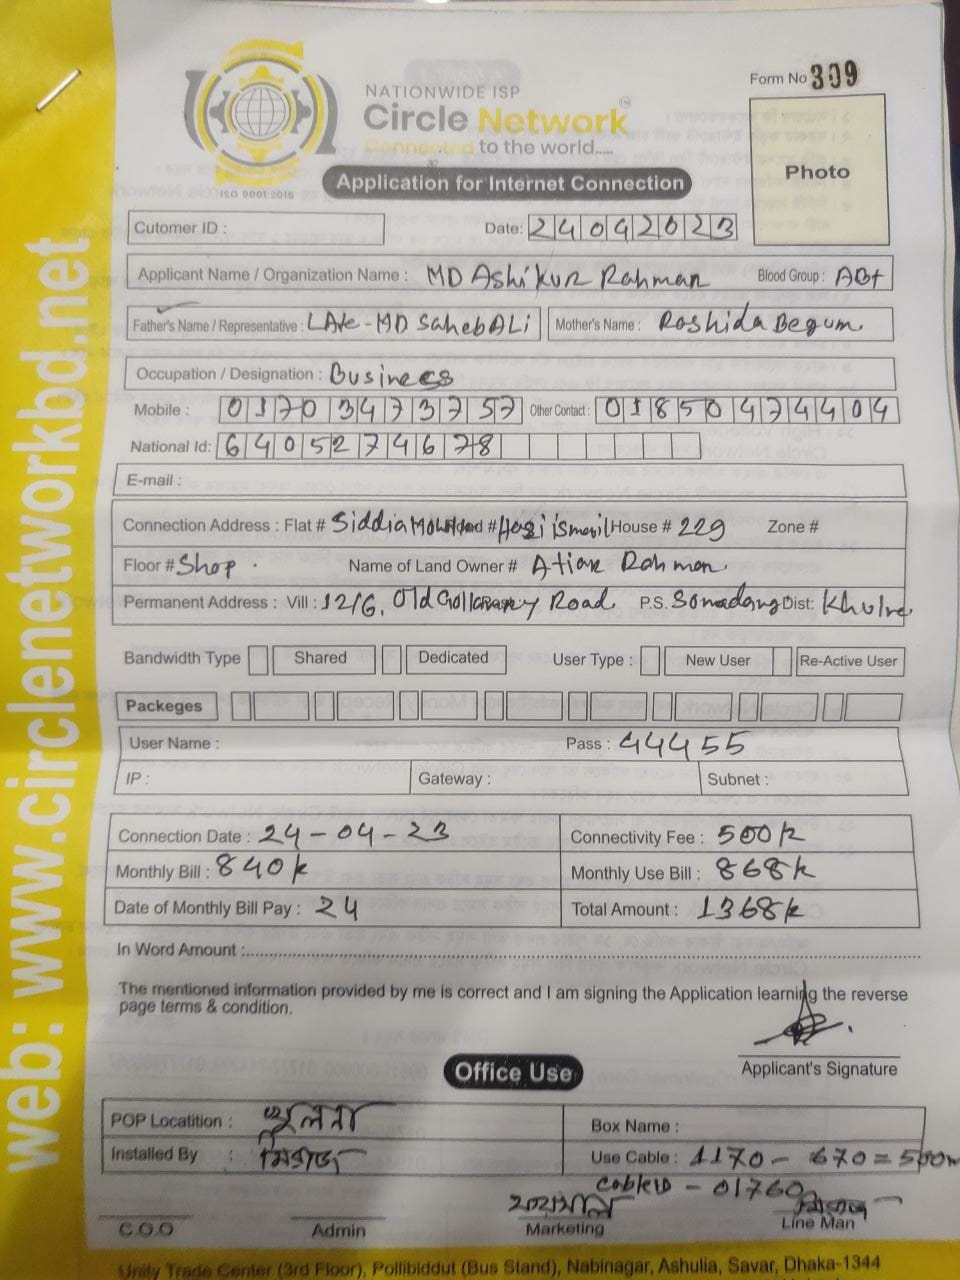 web: www.circlenetworkbd.net
Form No 309
NATIONWIDE ISP
Circle Network
Connected to the world.....
ISO 9001:2015
Application for Internet Connection
Photo
Cutomer ID :
Date: 24042023
Applicant Name / Organization Name : MD Ashikur Rahman Blood Group : AB+
Father's Name / Representative : LAte - MD Saheb ALi Mother's Name : Roshida Begum
Occupation / Designation : Business
Mobile : 01703473757 Other Contact : 01850474404
National Id: 6405274678
E-mail :
Connection Address : Flat # Siddia # Hazi ismail House # 229 Zone #
Floor # Shop . Name of Land Owner # Atiar Rahman
Permanent Address : Vill : 12/6, Old Road P.S. Sonadang Dist: Khulna
Bandwidth Type Shared Dedicated User Type : New User Re-Active User
Packeges
User Name : Pass : 44455
IP : Gateway : Subnet :
Connection Date : 24-04-23 Connectivity Fee : 500k
Monthly Bill : 840k Monthly Use Bill : 868k
Date of Monthly Bill Pay : 24 Total Amount : 1368k
In Word Amount :
The mentioned information provided by me is correct and I am signing the Application learning the reverse
page terms & condition.
Applicant's Signature
Office Use
POP Locatition : খুলনা Box Name :
Installed By : মিরাজ Use Cable : 1170 - 670 = 500m
CableID - 01760
C.O.O Admin Marketing Line Man
Unity Trade Center (3rd Floor), Pollibiddut (Bus Stand), Nabinagar, Ashulia, Savar, Dhaka-1344